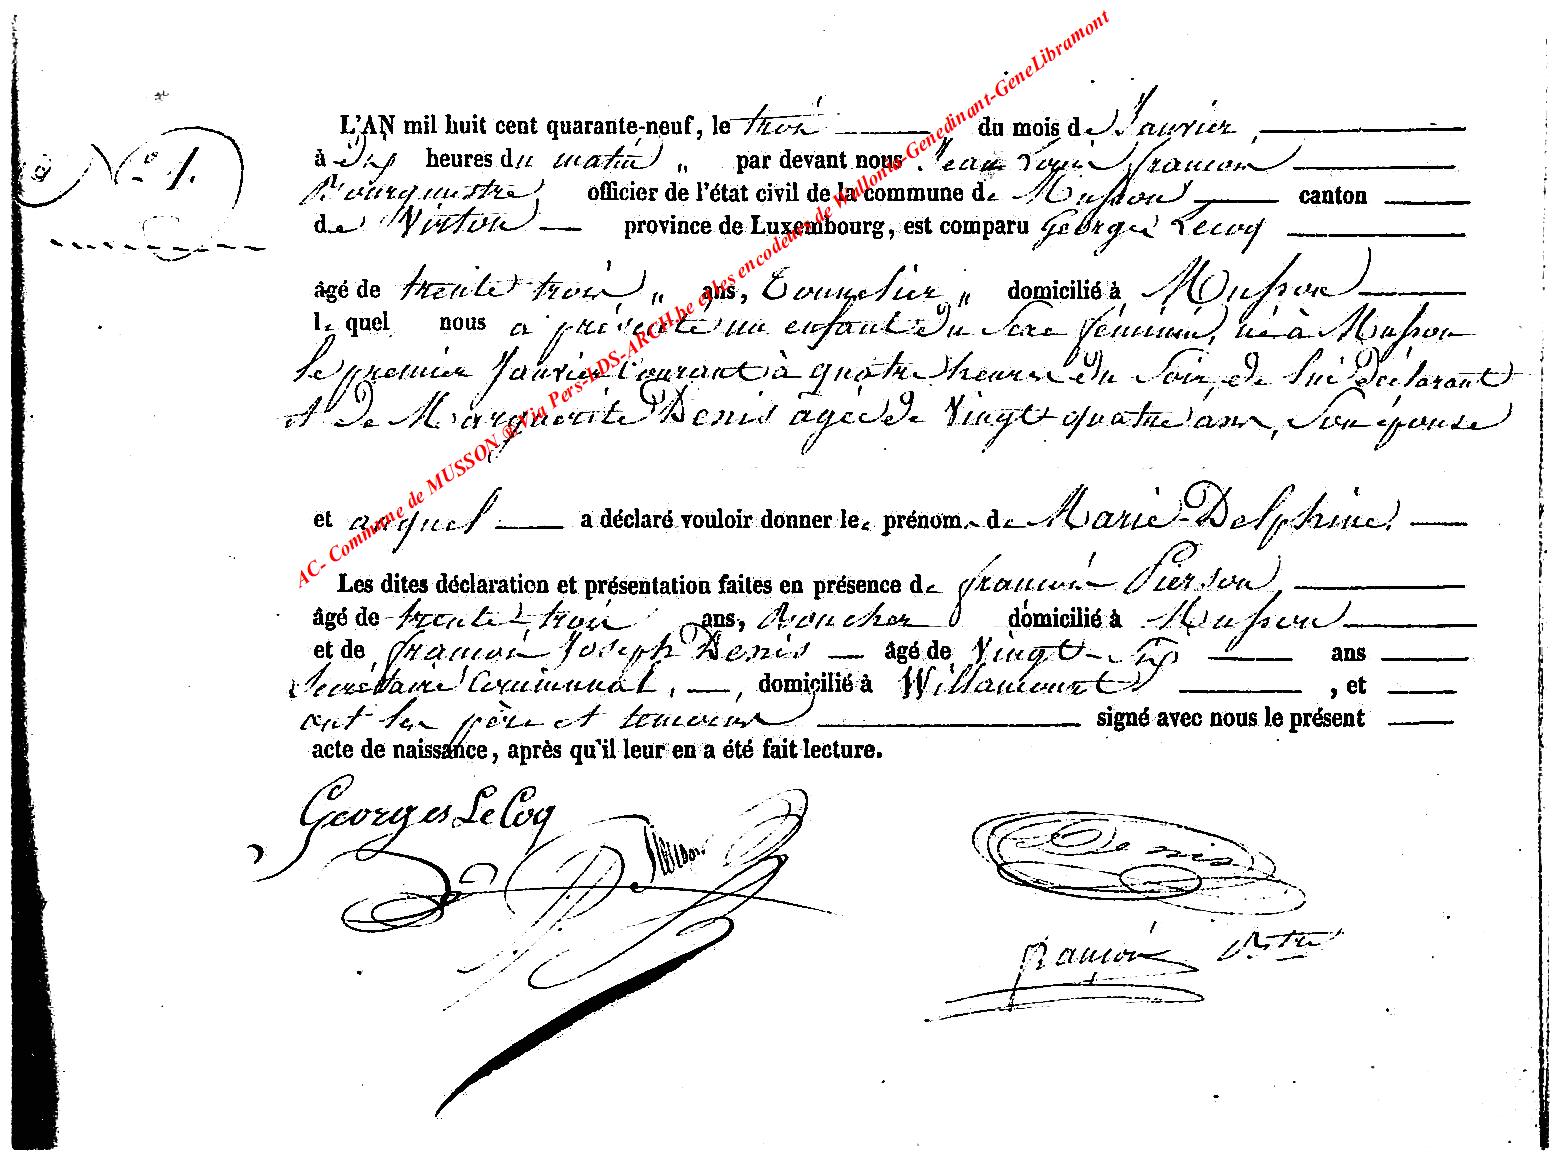 N.° 1.
L'AN mil huit cent quarante-neuf, le trois du mois de Janvier,
à dix heures du matin „ par devant nous Jean Louis François
Bourgmestre, officier de l'état civil de la commune de Musson canton
de Virton province de Luxembourg, est comparu Georges Lecoq
âgé de trente trois „ ans, Tourelier „ domicilié à Musson
le quel nous a présenté un enfant du sexe féminin, né à Musson
le premier Janvier courant à quatre heures du soir, de lui déclarant
et de Marguerite Denis agée de vingt quatre ans, son épouse
et auquel a déclaré vouloir donner les prénoms de Marie-Delphine.
Les dites déclaration et présentation faites en présence de François Pierson,
âgé de trente-trois ans, domicilié à Musson
et de François Joseph Denis âgé de vingt-six ans
Secrétaire communal, domicilié à Willancourt, et
ont les père et temoins signé avec nous le présent
acte de naissance, après qu'il leur en a été fait lecture.
Georges LeCoq
Pierson
Denis
François Bstre
AC- Commune de MUSSON ® Via Pers-LDS-ARCH.be et les encodeurs de Wallonia-Genedinant-GeneLibramont